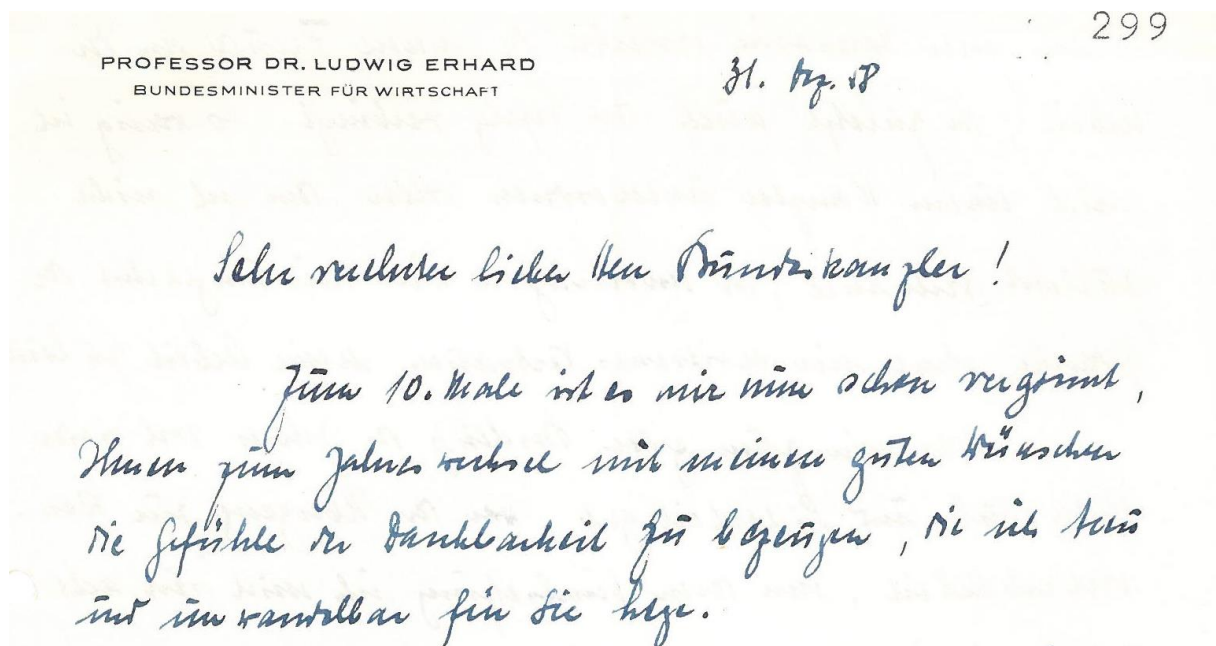 299
PROFESSOR DR. LUDWIG ERHARD
BUNDESMINISTER FÜR WIRTSCHAFT
31. Dez. 58
Sehr verehrter lieber Herr Bundeskanzler!
Zum 10. Male ist es mir nun schon vergönnt,
Ihnen zum Jahreswechsel mit meinen guten Wünschen
die Gefühle der Dankbarkeit zu bezeugen, die ich treu
und unwandelbar für Sie hege.